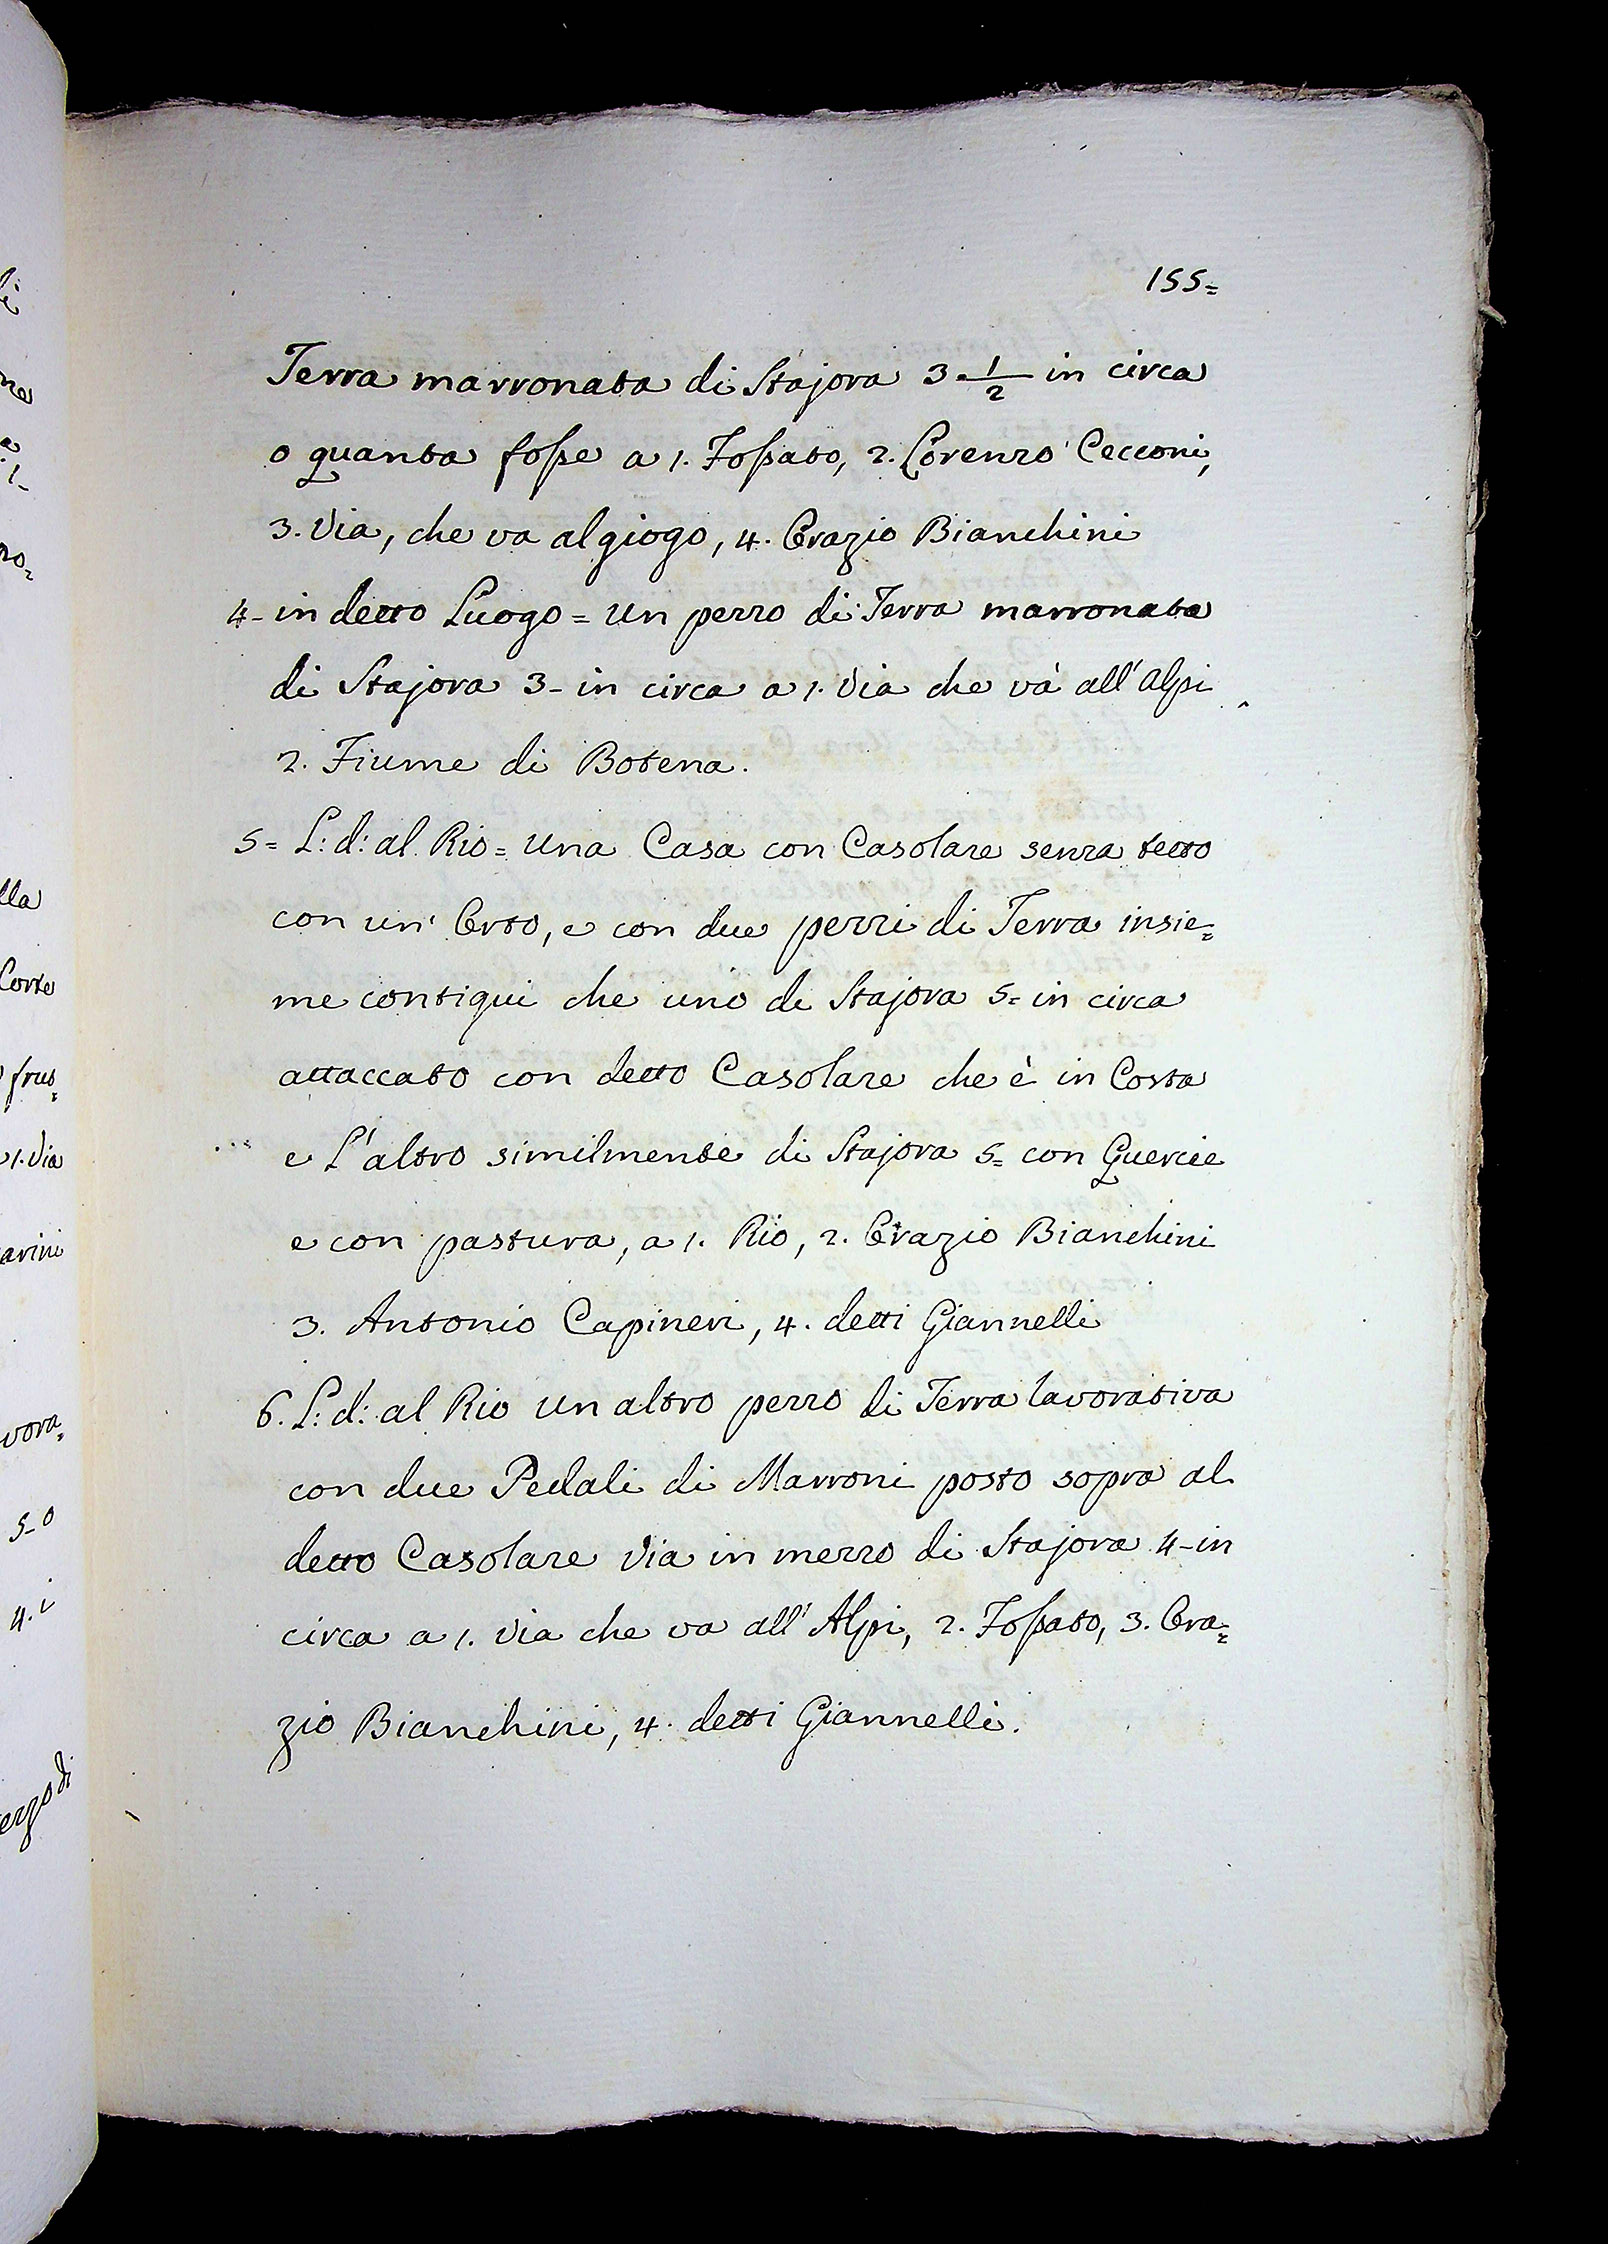 155=
Terra marronata di Stajora 3. 1/2 in circa
o quanta fosse a 1. Fossato, 2. Lorenzo Cecconi,
3. Via, che va al giogo, 4. Orazio Bianchini
4- in detto Luogo = un pezzo di Terra marronata
di Stajora 3- in circa a 1. Via che và all'alpi
2. Fiume di Botena.
5= L: d: al Rio= una Casa con Casolare senza tetto
con un' Orto, e con due pezzi di Terra insie=
me contigui che uno di Stajora 5= in circa
attaccato con detto Casolare che è in Costa
e L'altro similmente di Stajora 5= con Quercie
e con pastura, a 1. Rio, 2. Orazio Bianchini
3. Antonio Capineri, 4. detti Giannelli
6. L: d: al Rio un altro pezzo di Terra lavorativa
con due Pedali di Marroni posto sopra al
detto Casolare Via in mezzo di Stajora 4- in
circa a 1. via che va all' Alpi, 2. Fossato, 3. Ora=
zio Bianchini, 4. detti Giannelli.
lla
Corte
frut=
1. Via
arini
vora=
5-0
4. i
erzo di